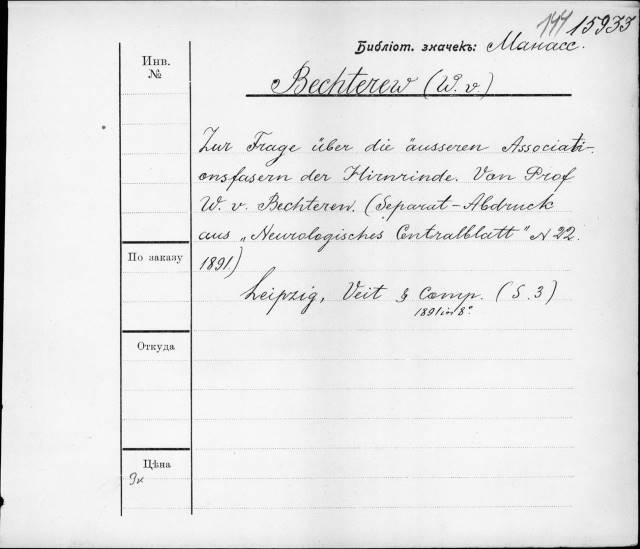 144 15933
Библіот. значекъ: Манасс.
Инв.
№
Bechterew (W. v.)
Zur Frage über die äusseren Associati-
onsfasern der Hirnrinde. Von Prof
W. v. Bechterew. (Separat-Abdruck
aus „Neurologisches Centralblatt" N 22.
1891.)
По заказу
Leipzig, Veit & Comp. (S. 3)
1891 in 8°
Откуда
Цѣна